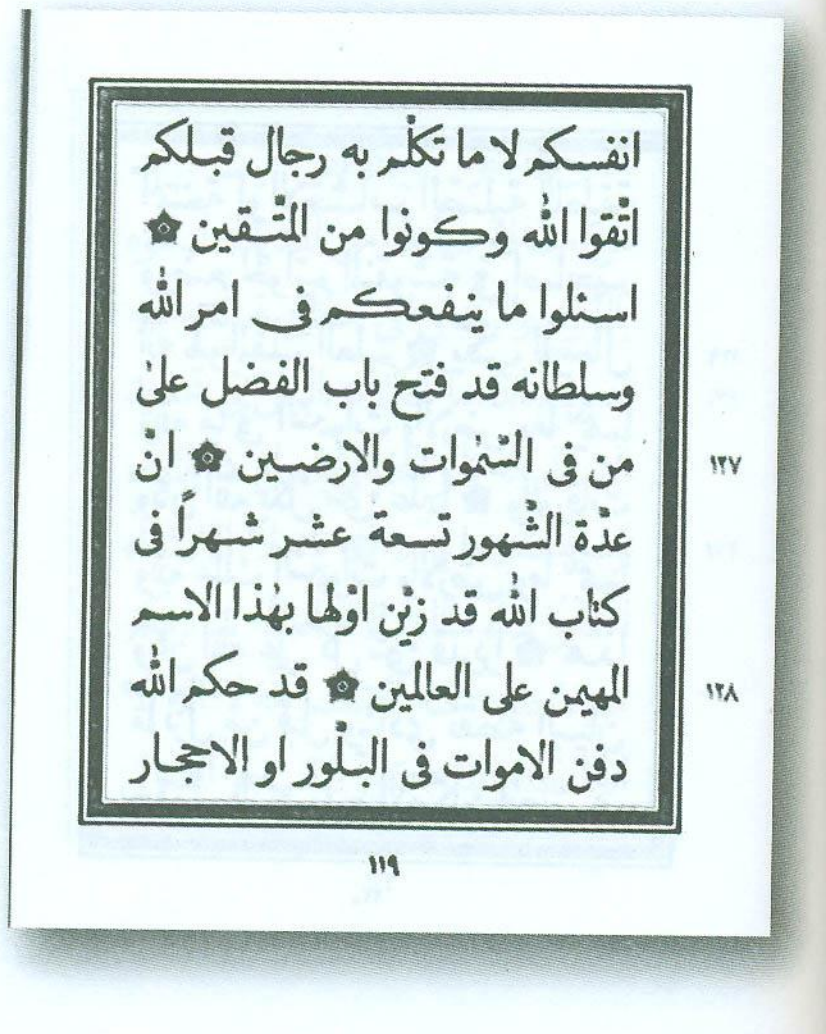 انفسكم لا ما تكلّم به رجال قبلكم
اتّقوا الله وكونوا من المتّقين ۞
اسئلوا ما ينفعكم فی امر الله
وسلطانه قد فتح باب الفضل علیٰ
من فی السّمٰوات والارضين ۞ انّ
١٢٧
عدّة الشّهور تسعة عشر شهراً فی
كتاب الله قد زيّن اوّلها بهٰذا الاسم
المهيمن علی العالمين ۞ قد حكم الله
١٢٨
دفن الاموات فی البلّور او الاحجار
١١٩